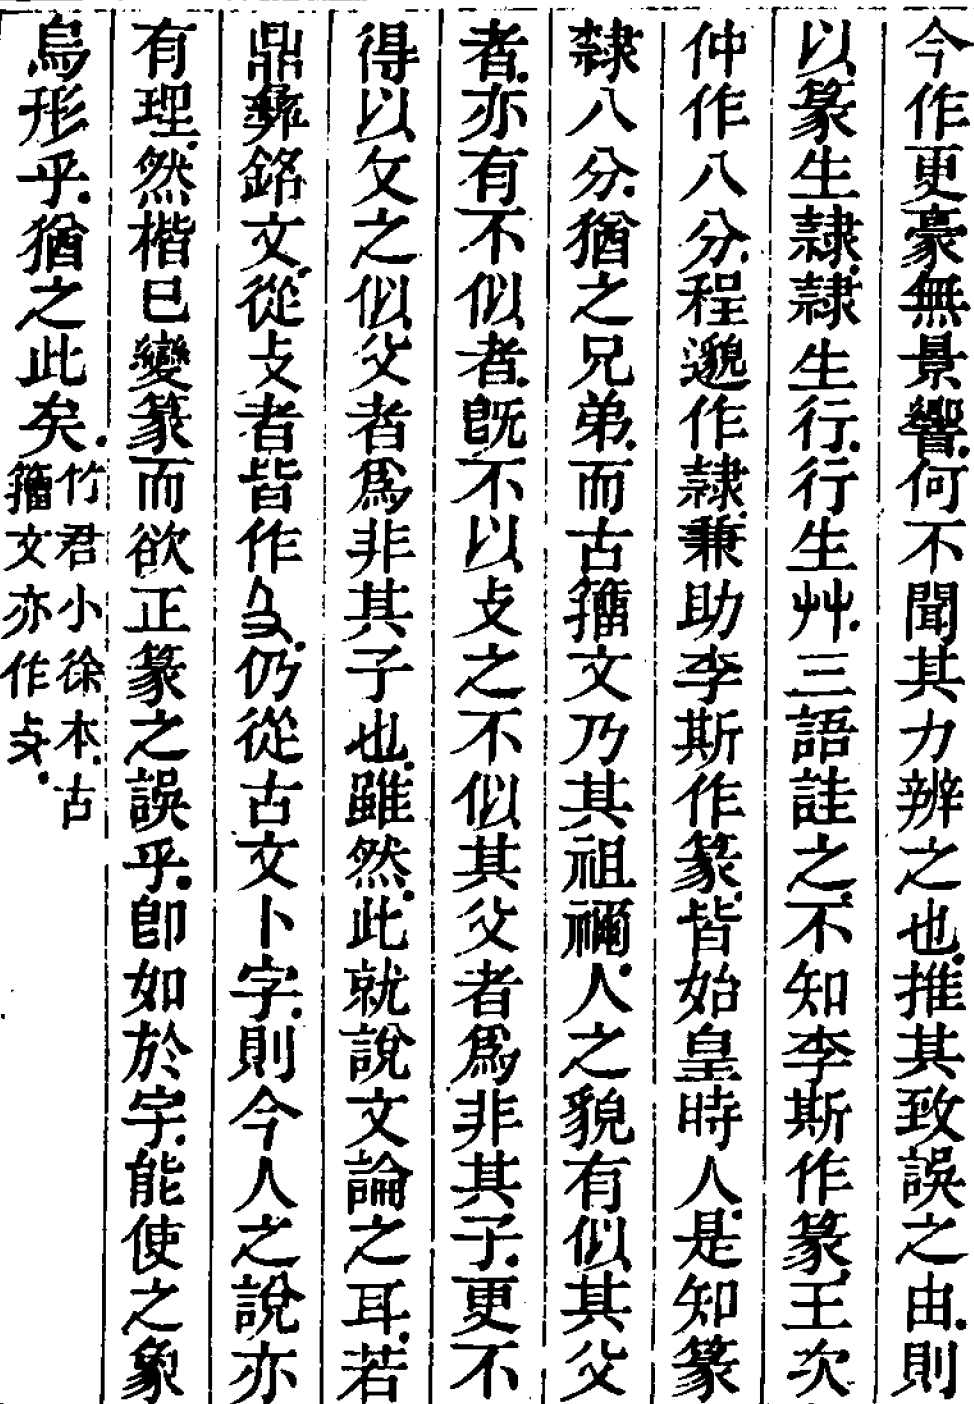 今作更豪無景響.何不聞其力辨之也.推其致誤之由.則
以篆生隸.隸生行.行生艸.三語詿之.不知李斯作篆.王次
仲作八分.程邈作隸.兼助李斯作篆.皆始皇時人.是知篆
隸八分.猶之兄弟.而古籀文乃其祖禰.人之貌有似其父
者.亦有不似者.旣不以攴之不似其父者爲非其子.更不
得以攵之似父者爲非其子也.雖然.此就說文論之耳.若
鼎彝銘文.從攴者皆作.仍從古文卜字.則今人之說亦
有理.然楷已變篆而欲正篆之誤乎.卽如於字.能使之象
烏形乎.猶之此矣.
竹君小徐本.古
籀文亦作.